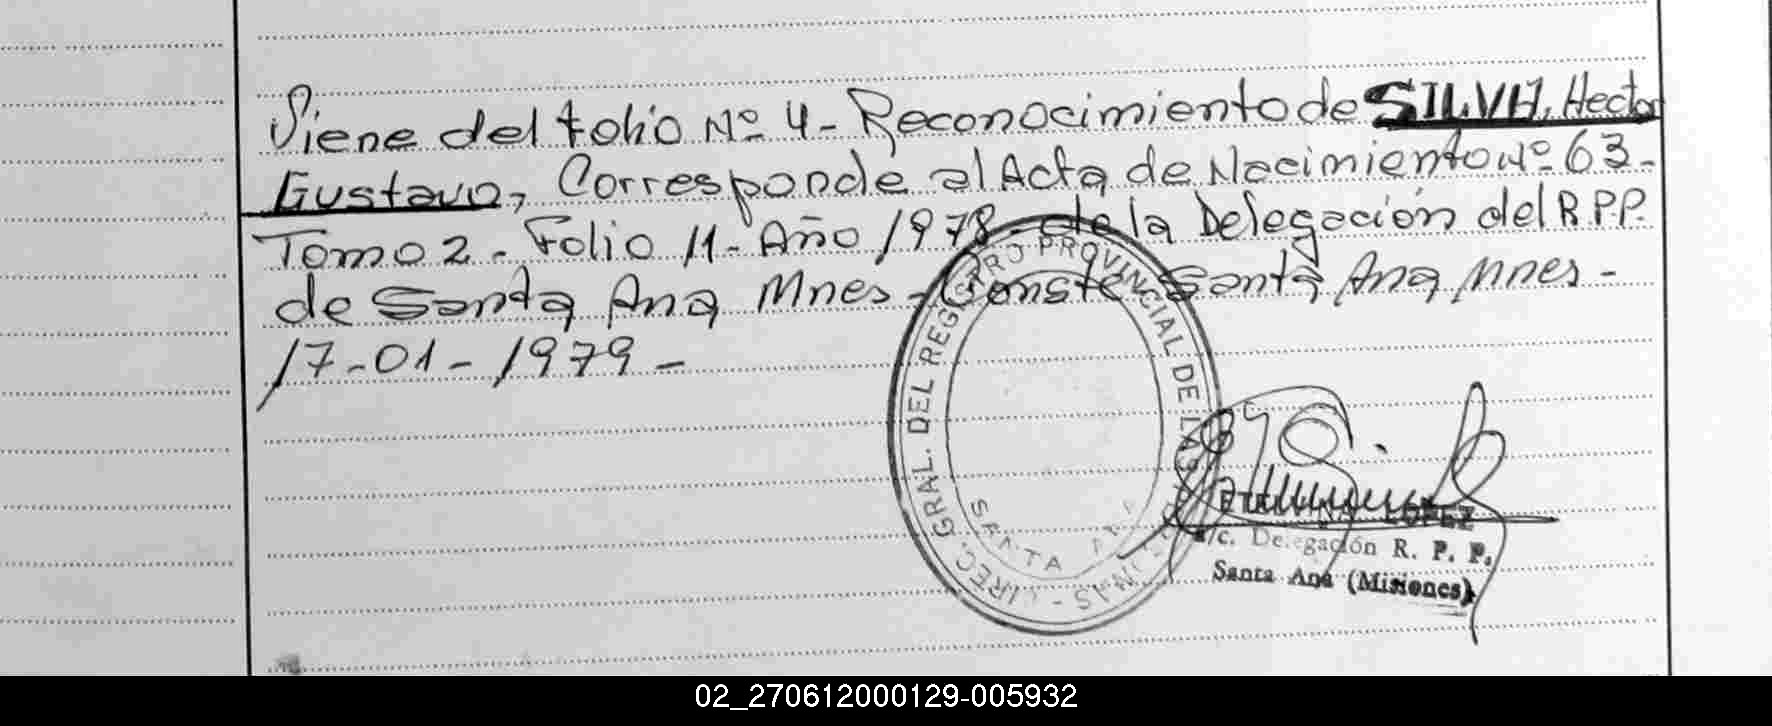 Viene del folio Nº 4 - Reconocimiento de SILVA, Hector
Gustavo, Corresponde al Acta de Nacimiento Nº 63 -
Tomo 2 - Folio 11 - Año 1978 - de la Delegación del R.P.P.
de Santa Ana Mnes - Conste - Santa Ana Mnes -
17-01-1979 -
DIREC. GRAL. DEL REGISTRO PROVINCIAL DE LAS PERSONAS -
SANTA ANA
LOPEZ
a/c. Delegación R. P. P.
Santa Ana (Misiones)
02_270612000129-005932